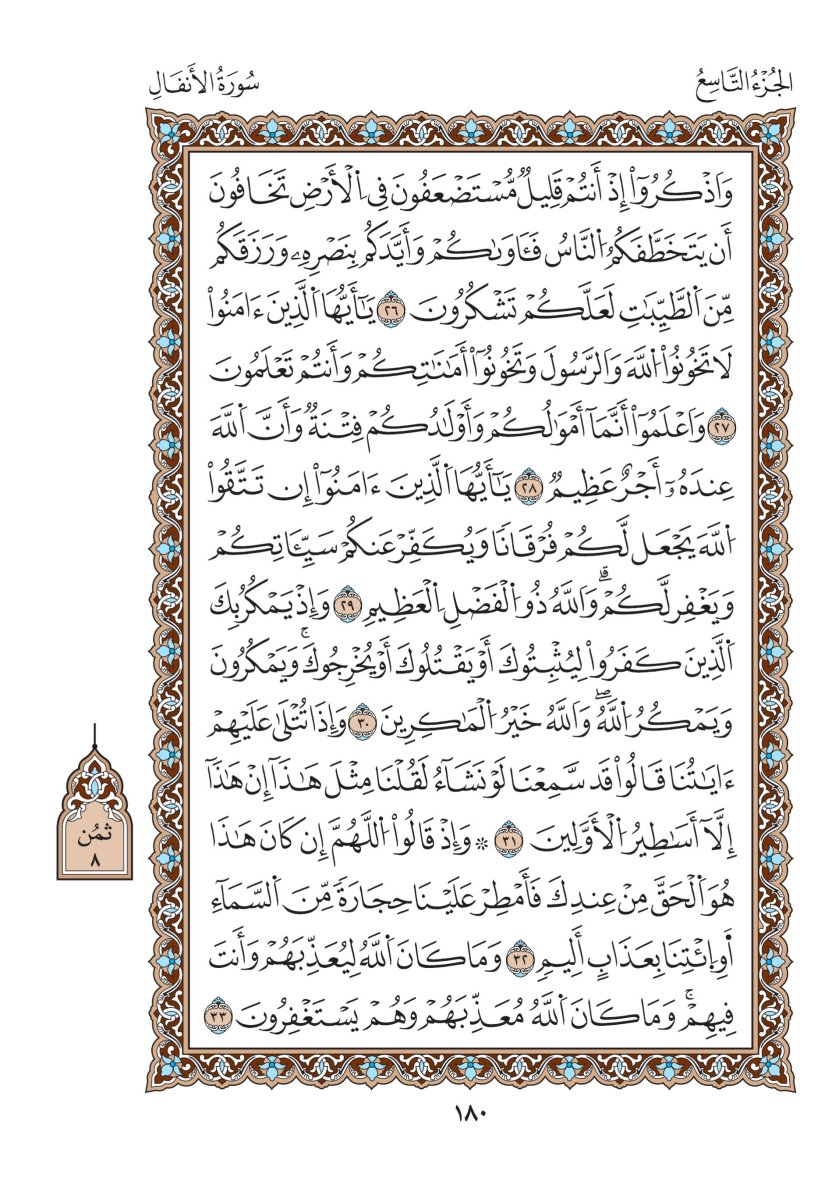 الجُزْءُ التَّاسِعُ
سُورَةُ الأَنفَالِ
وَاَذْكُرُوٓاْ إِذْ أَنتُمْ قَلِيلٌ مُّسْتَضْعَفُونَ فِي اِ۬لْأَرْضِ تَخَافُونَ
أَن يَتَخَطَّفَكُمُ اُ۬لنَّاسُ فَـَٔاوَىٰكُمْ وَأَيَّدَكُم بِنَصْرِهِۦ وَرَزَقَكُم
مِّنَ اَ۬لطَّيِّبَٰتِ لَعَلَّكُمْ تَشْكُرُونَ ٢٦ يَٰٓأَيُّهَا اَ۬لَّذِينَ ءَامَنُواْ
لَا تَخُونُواْ اُ۬للَّهَ وَالرَّسُولَ وَتَخُونُوٓاْ أَمَٰنَٰتِكُمْ وَأَنتُمْ تَعْلَمُونَ
٢٧ وَاَعْلَمُوٓاْ أَنَّمَآ أَمْوَٰلُكُمْ وَأَوْلَٰدُكُمْ فِتْنَةٌ وَأَنَّ اَ۬للَّهَ
عِندَهُۥٓ أَجْرٌ عَظِيمٌ ٢٨ يَٰٓأَيُّهَا اَ۬لَّذِينَ ءَامَنُوٓاْ إِن تَتَّقُواْ
اُ۬للَّهَ يَجْعَل لَّكُمْ فُرْقَانًا وَيُكَفِّرْ عَنكُمْ سَيِّـَٔاتِكُمْ
وَيَغْفِر لَّكُمْۗ وَاللَّهُ ذُو اُ۬لْفَضْلِ اِ۬لْعَظِيمِ ٢٩ وَإِذْ يَمْكُرُ بِكَ
اَ۬لَّذِينَ كَفَرُواْ لِيُثْبِتُوكَ أَوْ يَقْتُلُوكَ أَوْ يُخْرِجُوكَۚ وَيَمْكُرُونَ
وَيَمْكُرُ اُ۬للَّهُۖ وَاللَّهُ خَيْرُ اُ۬لْمَٰكِرِينَ ٣٠ وَإِذَا تُتْلَىٰ عَلَيْهِمْ
ءَايَٰتُنَا قَالُواْ قَد سَّمِعْنَا لَوْ نَشَآءُ لَقُلْنَا مِثْلَ هَٰذَآ إِنْ هَٰذَآ
إِلَّآ أَسَٰطِيرُ اُ۬لْأَوَّلِينَ ٣١ ۞ وَإِذْ قَالُواْ اُ۬للَّهُمَّ إِن كَانَ هَٰذَا
هُوَ اَ۬لْحَقَّ مِنْ عِندِكَ فَأَمْطِرْ عَلَيْنَا حِجَارَةً مِّنَ اَ۬لسَّمَآءِ
اَ۬وِ اِ۪ئْتِنَا بِعَذَابٍ أَلِيمٍ ٣٢ وَمَا كَانَ اَ۬للَّهُ لِيُعَذِّبَهُمْ وَأَنتَ
فِيهِمْۚ وَمَا كَانَ اَ۬للَّهُ مُعَذِّبَهُمْ وَهُمْ يَسْتَغْفِرُونَ ٣٣
ثمُن
٨
١٨٠